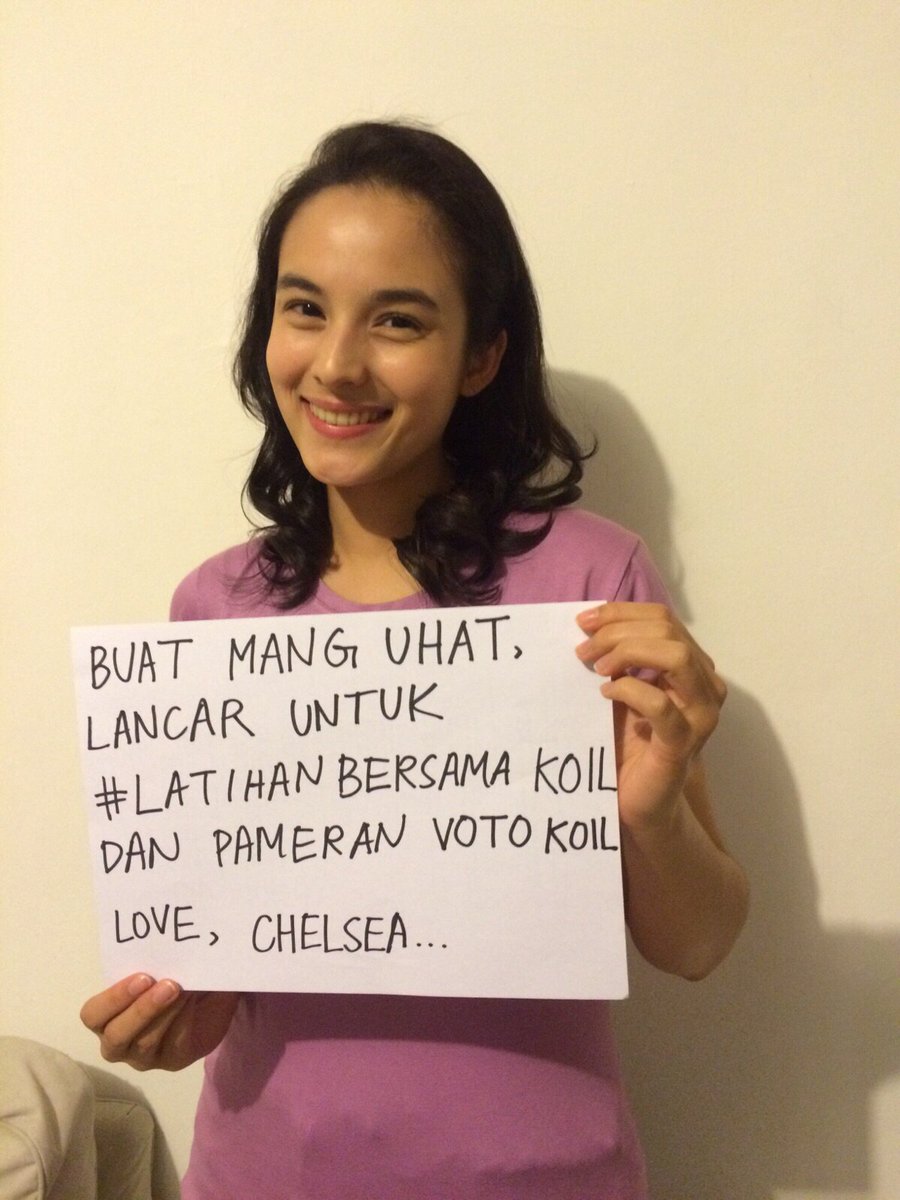 BUAT MANG UHAT,
LANCAR UNTUK
#LATIHANBERSAMA KOIL
DAN PAMERAN VOTO KOIL
LOVE, CHELSEA...